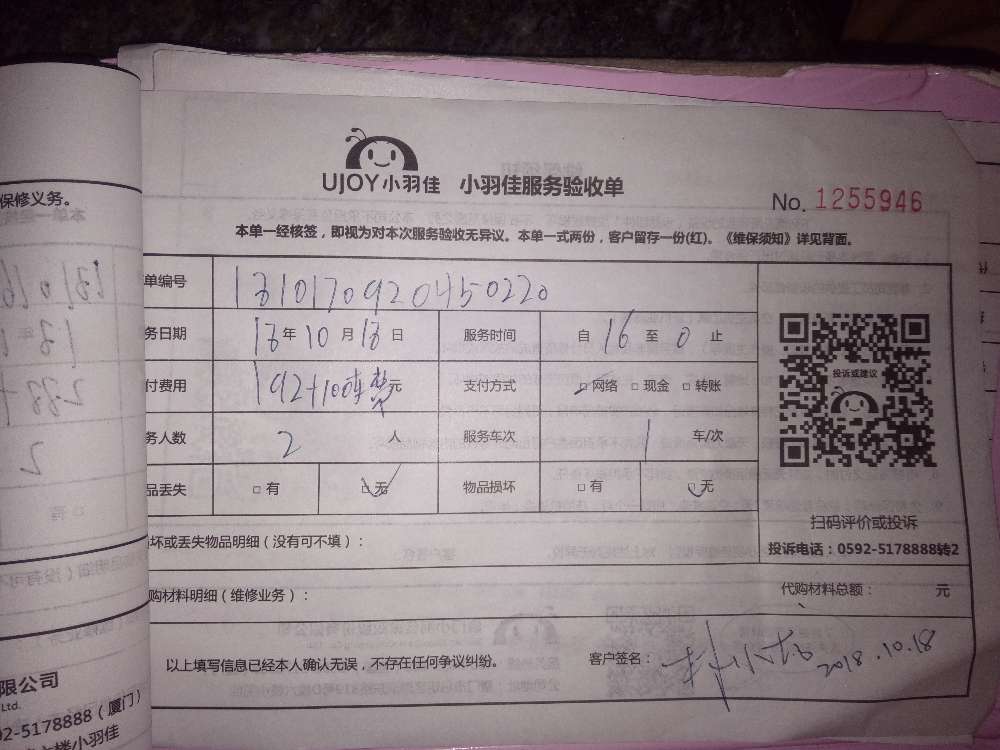 UJOY小羽佳 小羽佳服务验收单
No. 1255946
本单一经核签，即视为对本次服务验收无异议。本单一式两份，客户留存一份(红)。《维保须知》详见背面。
单编号
务日期 年10月 日 服务时间 自16至0止
付费用 192+100 费元 支付方式 □网络 □现金 □转账
务人数 2人 服务车次 1车/次
品丢失 □有 □无 物品损坏 □有 □无
投诉或建议
扫码评价或投诉
投诉电话：0592-5178888转2
坏或丢失物品明细（没有可不填）：
购材料明细（维修业务）： 代购材料总额： 元
以上填写信息已经本人确认无误，不存在任何争议纠纷。 客户签名： 2018.10.18
保修义务。
限公司
Ltd.
92-5178888（厦门）
七楼小羽佳